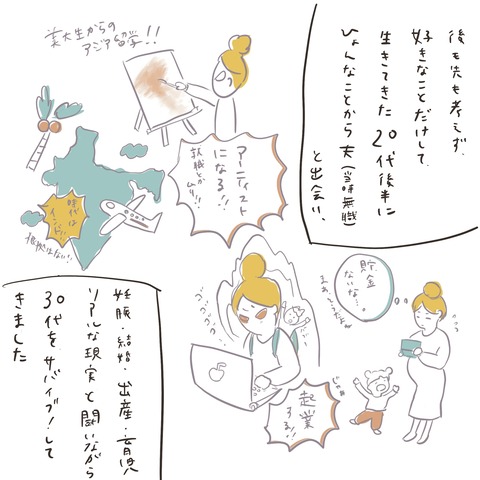 後も先も考えず、
好きなことだけして
生きてきた20代後半に
ひょんなことから夫(当時無職)
と出会い、
美大生からの
アジア留学!!
アーティスト
になる!!
就職とか
ムリ!!
時代は
インド!!
根拠はない!!
貯金
ないな…
まぁそうだよね
じゃあ
ゴゴゴゴ
起業
する!!
妊娠・結婚・出産・育児
リアルな現実と闘いながら
30代をサバイブ!して
きました